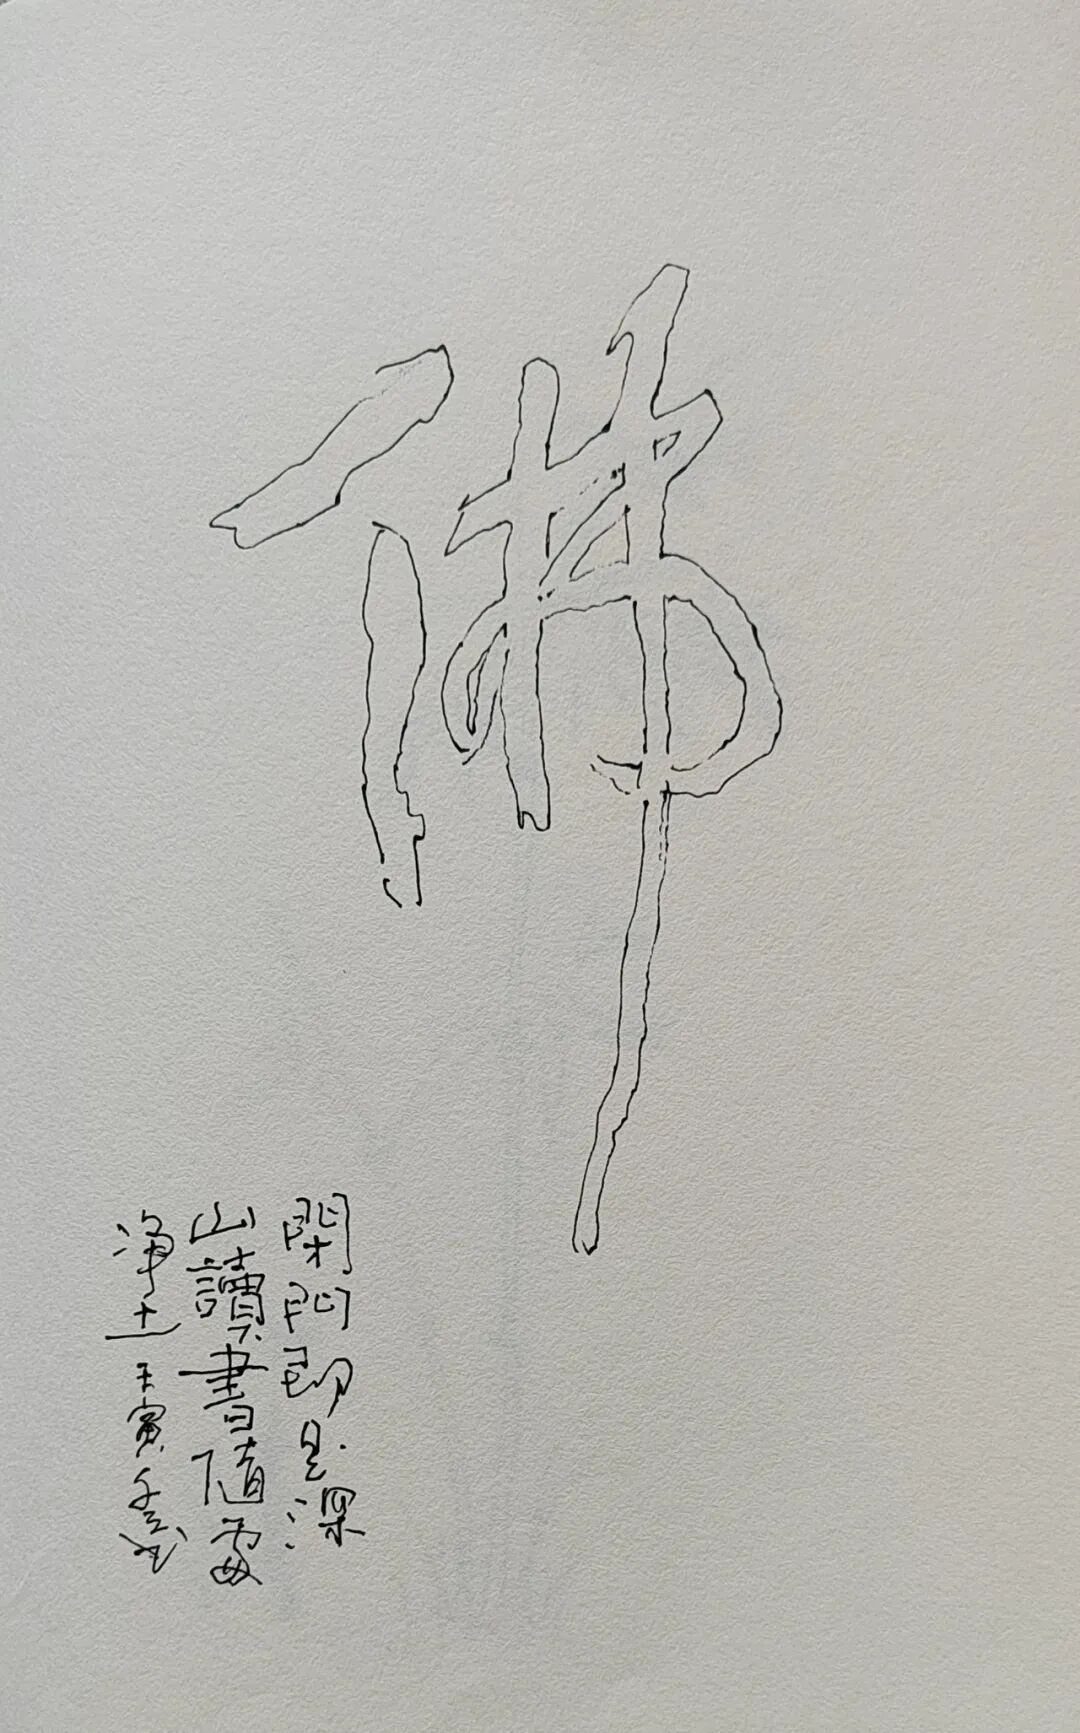 佛
閉門即是深
山讀書隨處
净土 壬寅